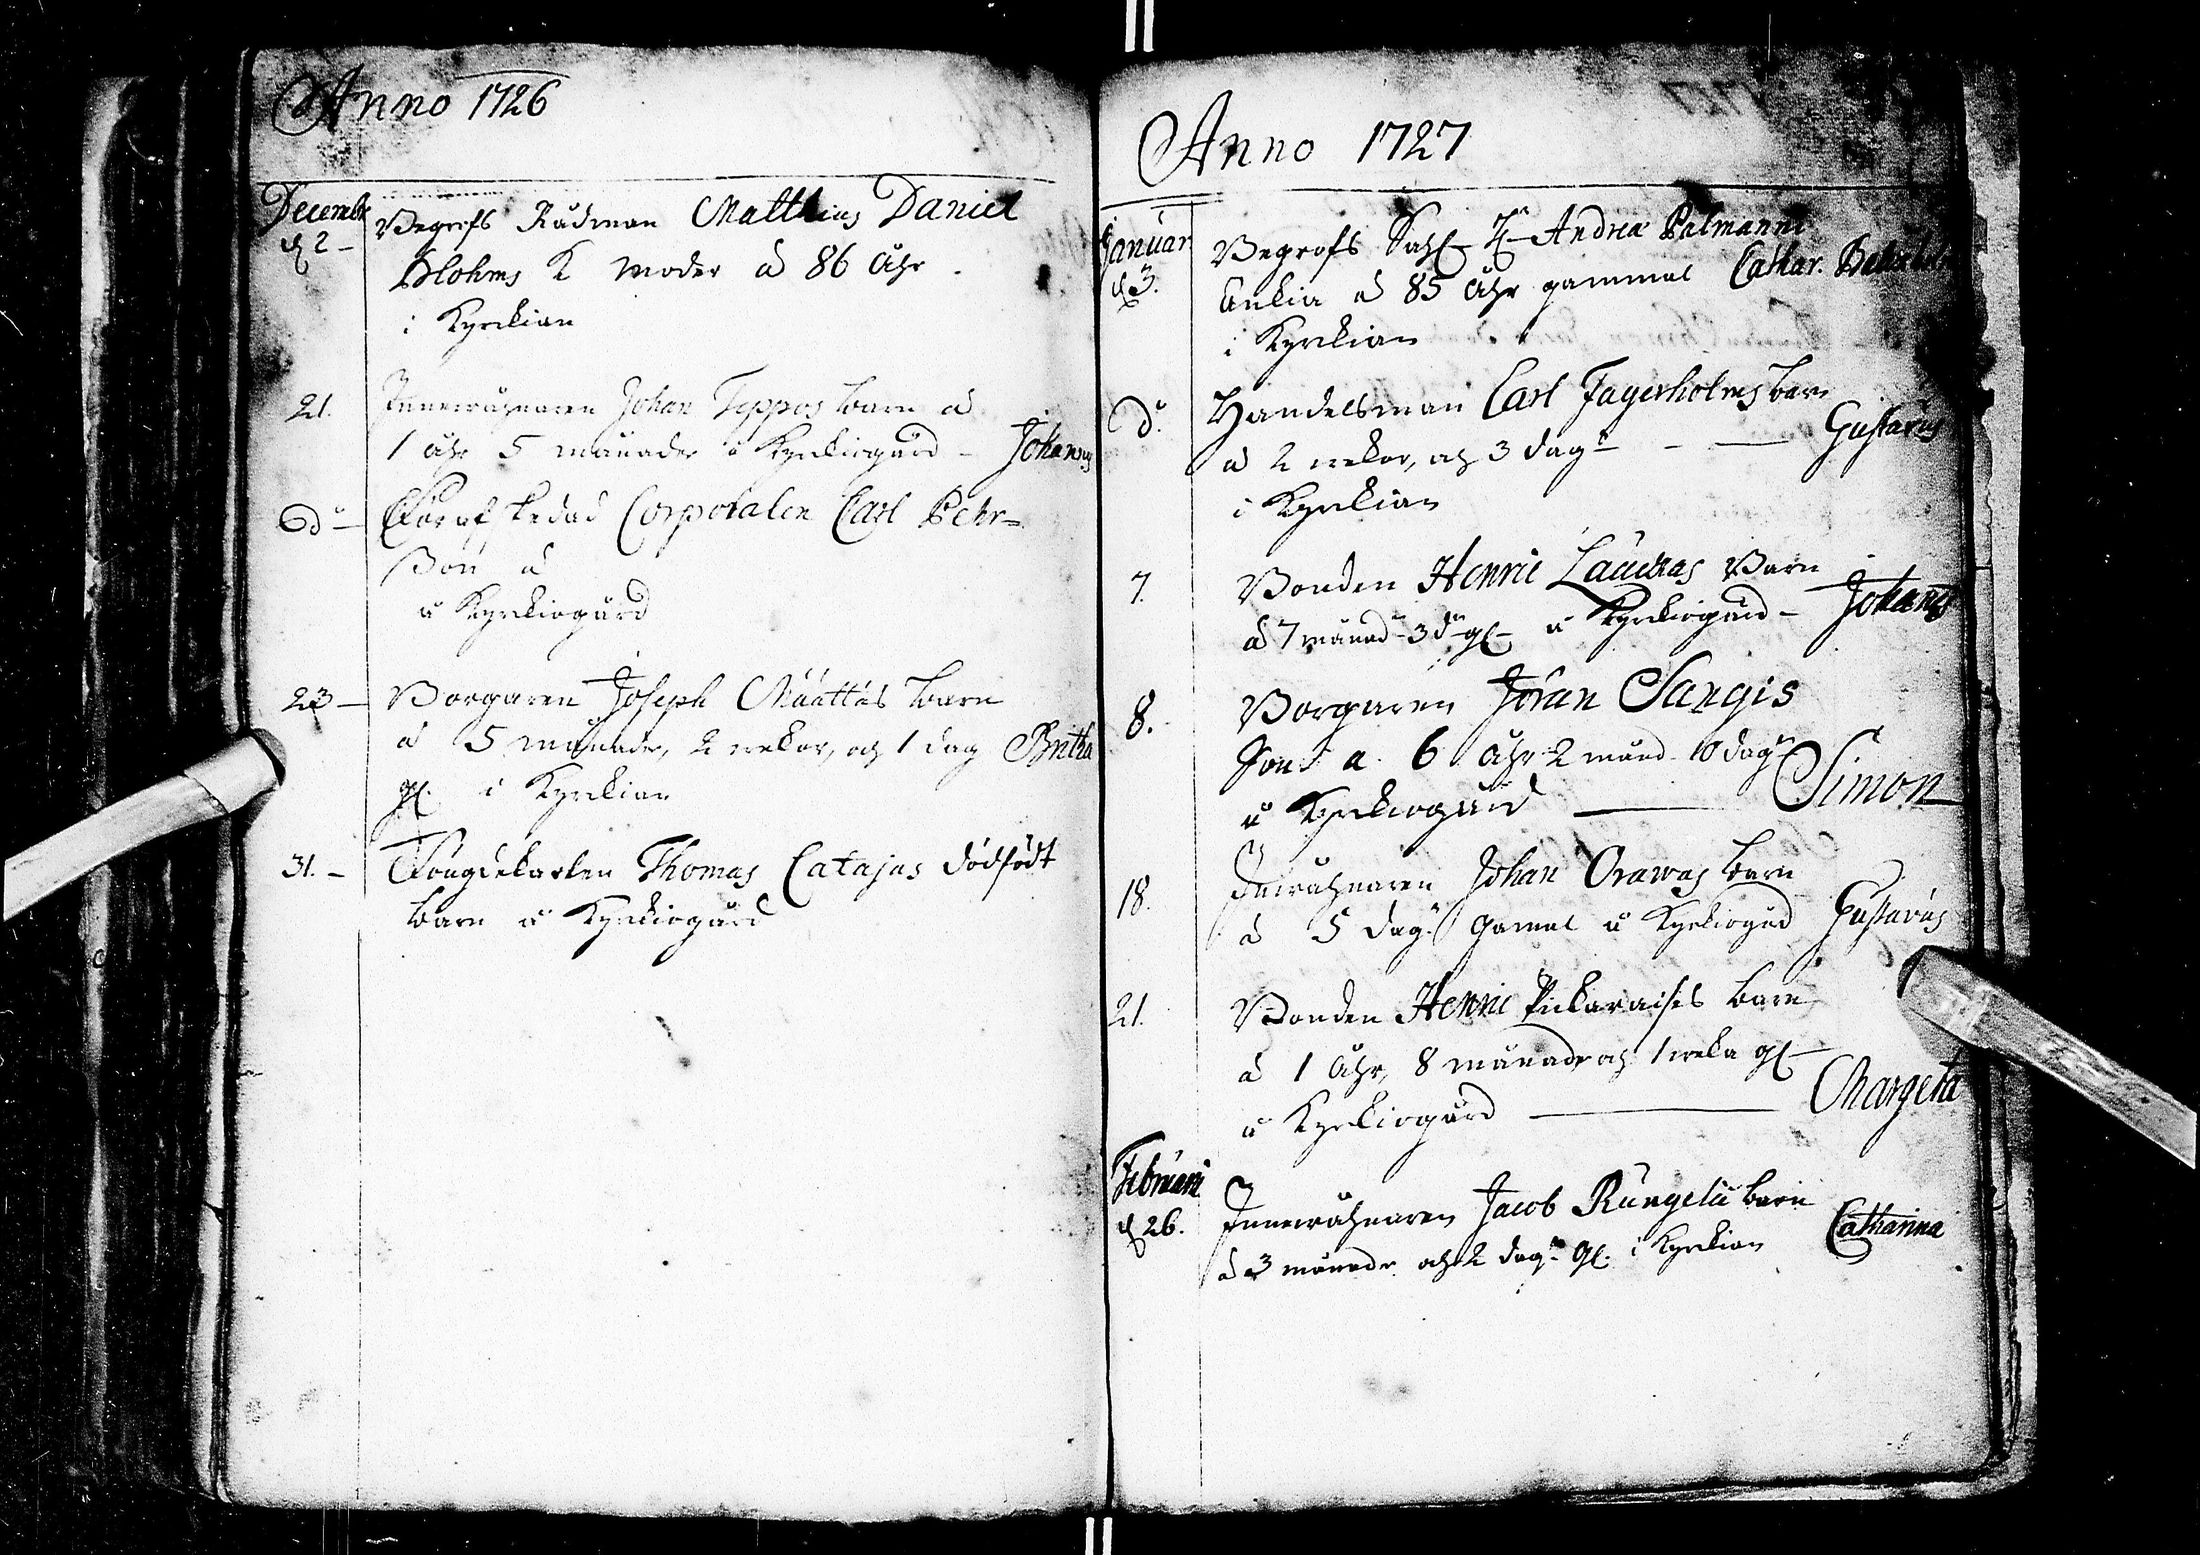 Anno 1726
Decembr
d 2 - Begrofs Rådman Matthias Daniel
Blohms K Moder á 86 åhr
i Kyrckian
21. Inneråhnaren Johan Teppos barn á
1 åhr 5 månader å Kyrkiogård - Johannes
Do - Förafskedad Corporalen Carl Pehr=
Son á
å Kyrkiogård
23 - Borgaren Joseph Määttäs barn
á 5 månader, 2 wekor, och 1 dag Britha
gl. i Kyrckian
31. - Fougdekarlen Thomas Catajas dödfödt
barn å Kyrkiogård
Anno 1727
Januar
d 3. Begrofs Sahl. H. Andreæ Palmanni
Enkia á 85 åhr gammal Cathar.
i Kyrkian
Do. Handelsman Carl Fagerholms barn
á 2 wekor, och 3 dagr - - Gustavus
i Kyrkian
7. Bonden Henric Lauckas Barn
á 7 månadr 3 dr gl - å Kyrkiogård - Johannes
8. Borgaren Jöran Sangis
Son á 6 åhr 2 månd 10 dagr
å Kyrkiogård - Simon
18. Inneråhnaren Johan Orawas barn
á 5 dagr gamal å Kyrkiogård Gustavus
21. Bonden Henric Pickaraises barn
á 1 åhr, 8 månader och 1 weka gl -
å Kyrkiogård - Margeta
Februarii
d 26. Inneråhnaren Jacob Rungela barn
á 3 månadr och 2 dagr gl. i Kyrckian Catharina